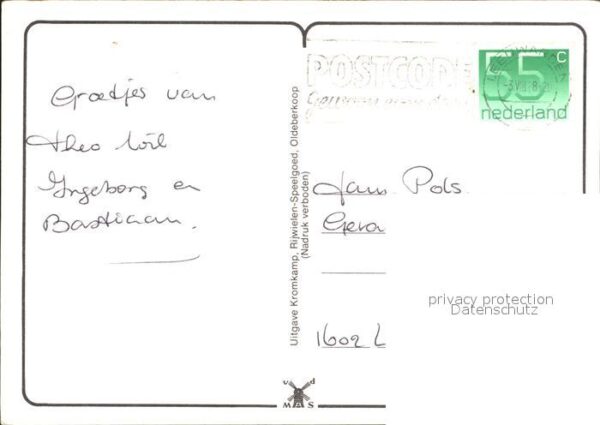 Groetjes van
Theo Wil
Ingeborg en
Bastiaan.
Uitgave Kromkamp, Rijwielen-Speelgoed, Oldeberkoop
(Nadruk verboden)
POSTCODE
55 c
nederland
Jam. Pols.
Gera
1602 L
privacy protection
Datenschutz
v d
MAS